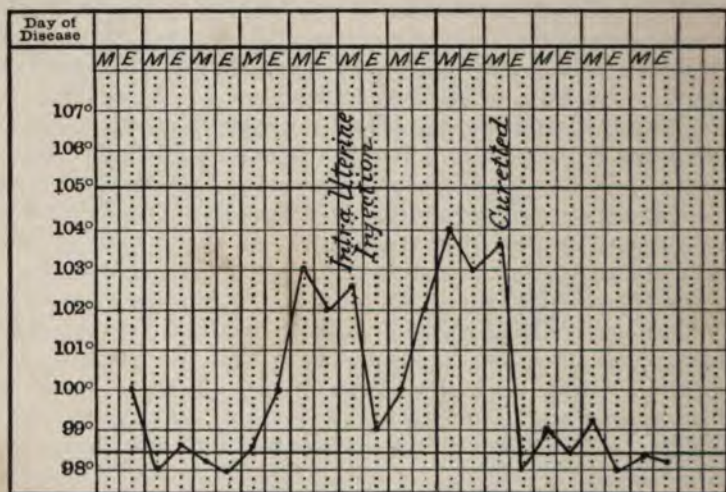 Day of
Disease
M E M E M E M E M E M E M E M E M E M E M E M E
107°
106°
105°
104°
103°
102°
101°
100°
99°
98°
Intra Uterine
Injection
Curetted